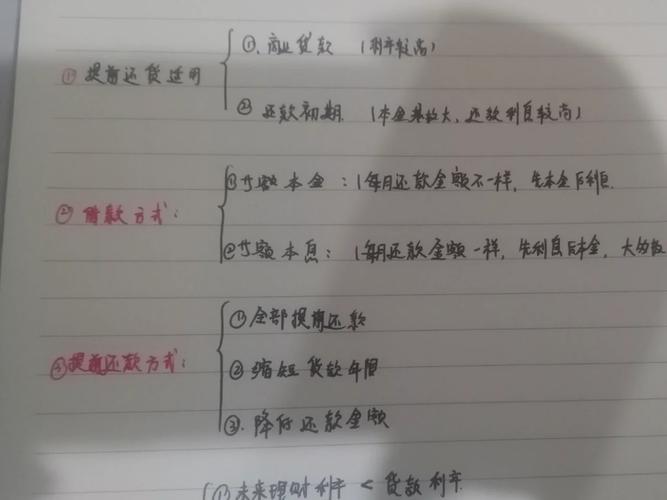 ① 提前还贷适用
①. 商业贷款 (利率较高)
② 还款初期. (本金基数大、还款利息较高)
② 借款方式:
①等额本金: (每月还款金额不一样, 先本金后利息.
②等额本息: (每月还款金额一样, 先利息后本金, 大多数
③提前还款方式:
①全部提前还款
② 缩短贷款年限
③. 降低还款金额
① 未来理财利率 < 贷款利率